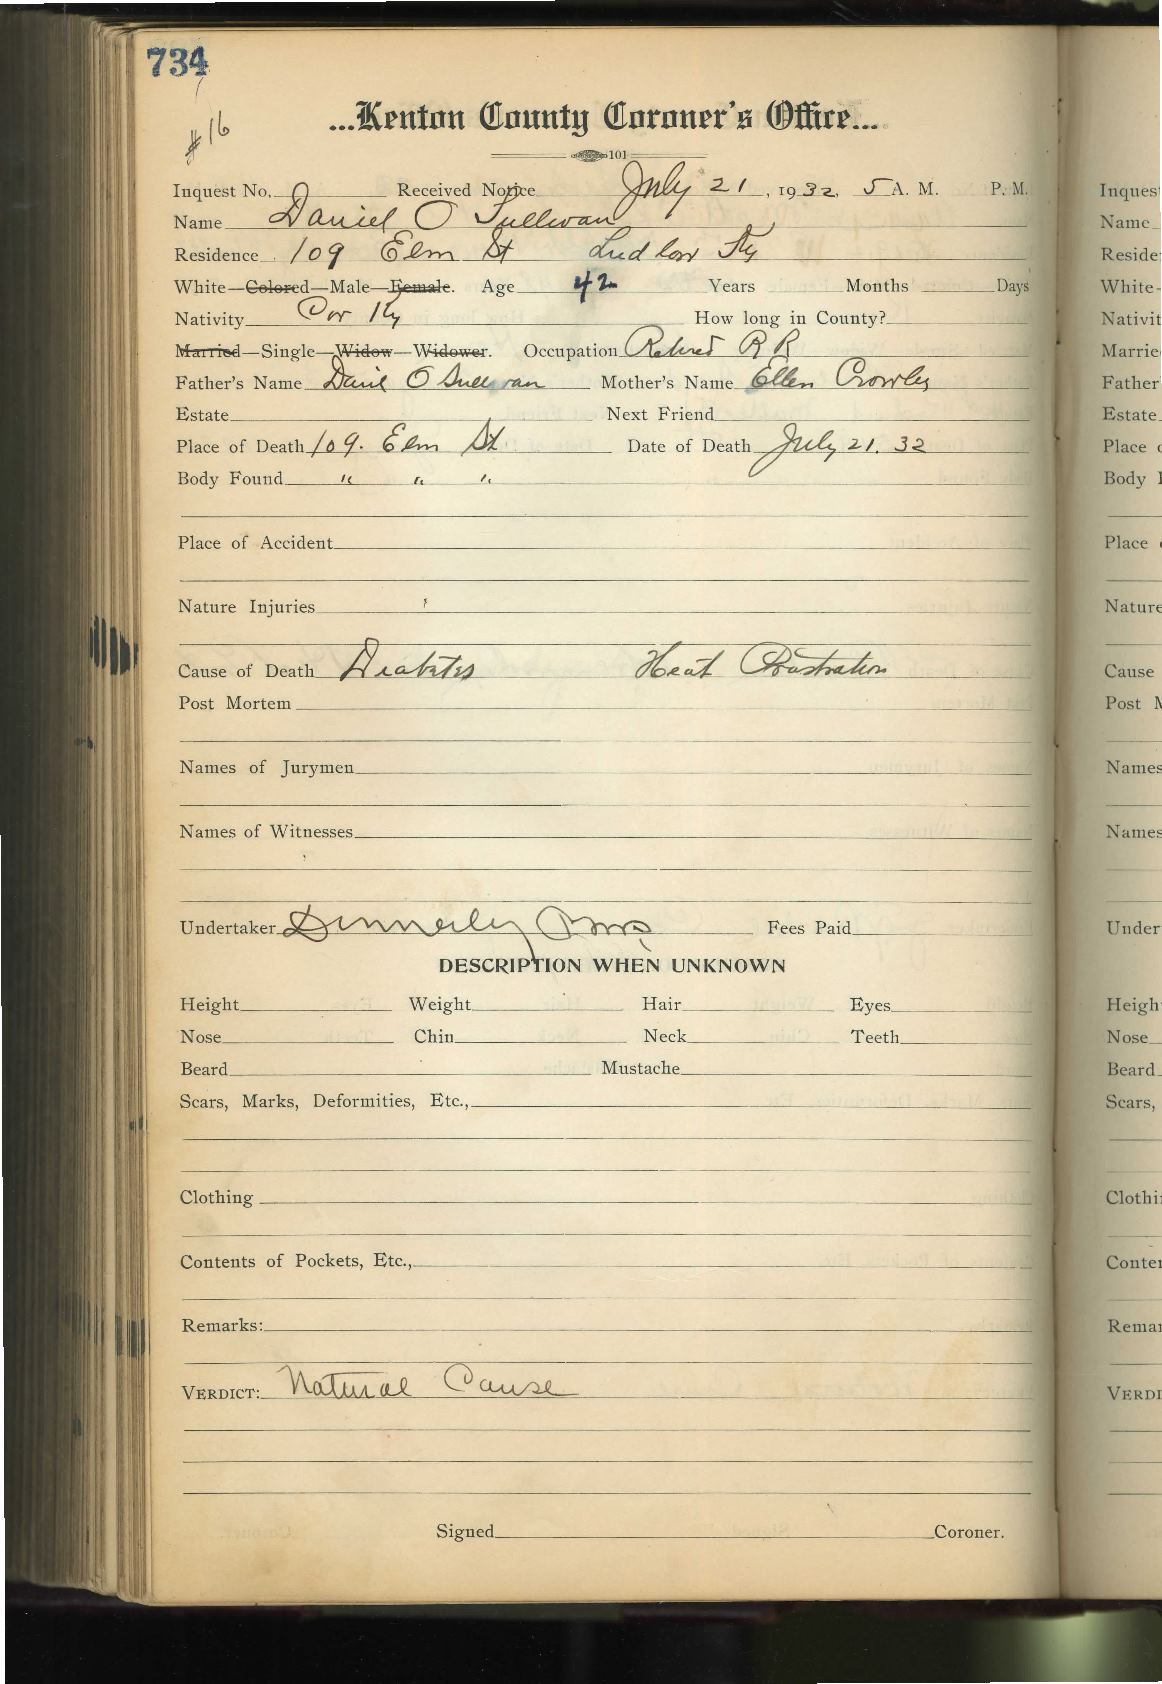 734
#16
...Kenton County Coroner's Office...
101
Inquest No. Received Notice July 21, 1932, 5 A. M. P. M.
Name Daniel O Sullivan
Residence 109 Elm St Ludlow Ky
White—Colored—Male—Female. Age 42 Years Months Days
Nativity Cov Ky How long in County?
Married—Single—Widow—Widower. Occupation Retired R R
Father's Name Daniel O Sullivan Mother's Name Ellen Crowley
Estate Next Friend
Place of Death 109. Elm St Date of Death July 21. 32
Body Found " " "
Place of Accident
Nature Injuries
Cause of Death Diabetes Heat Prostration
Post Mortem
Names of Jurymen
Names of Witnesses
Undertaker Bros Fees Paid
DESCRIPTION WHEN UNKNOWN
Height Weight Hair Eyes
Nose Chin Neck Teeth
Beard Mustache
Scars, Marks, Deformities, Etc.,
Clothing
Contents of Pockets, Etc.,
Remarks:
VERDICT: Natural Cause
Signed Coroner.
Inquest
Name
Reside
White-
Nativit
Marrie
Father'
Estate
Place
Body
Place
Nature
Cause
Post M
Names
Names
Under
Heigh
Nose
Beard
Scars,
Clothi
Conte
Remar
VERDI